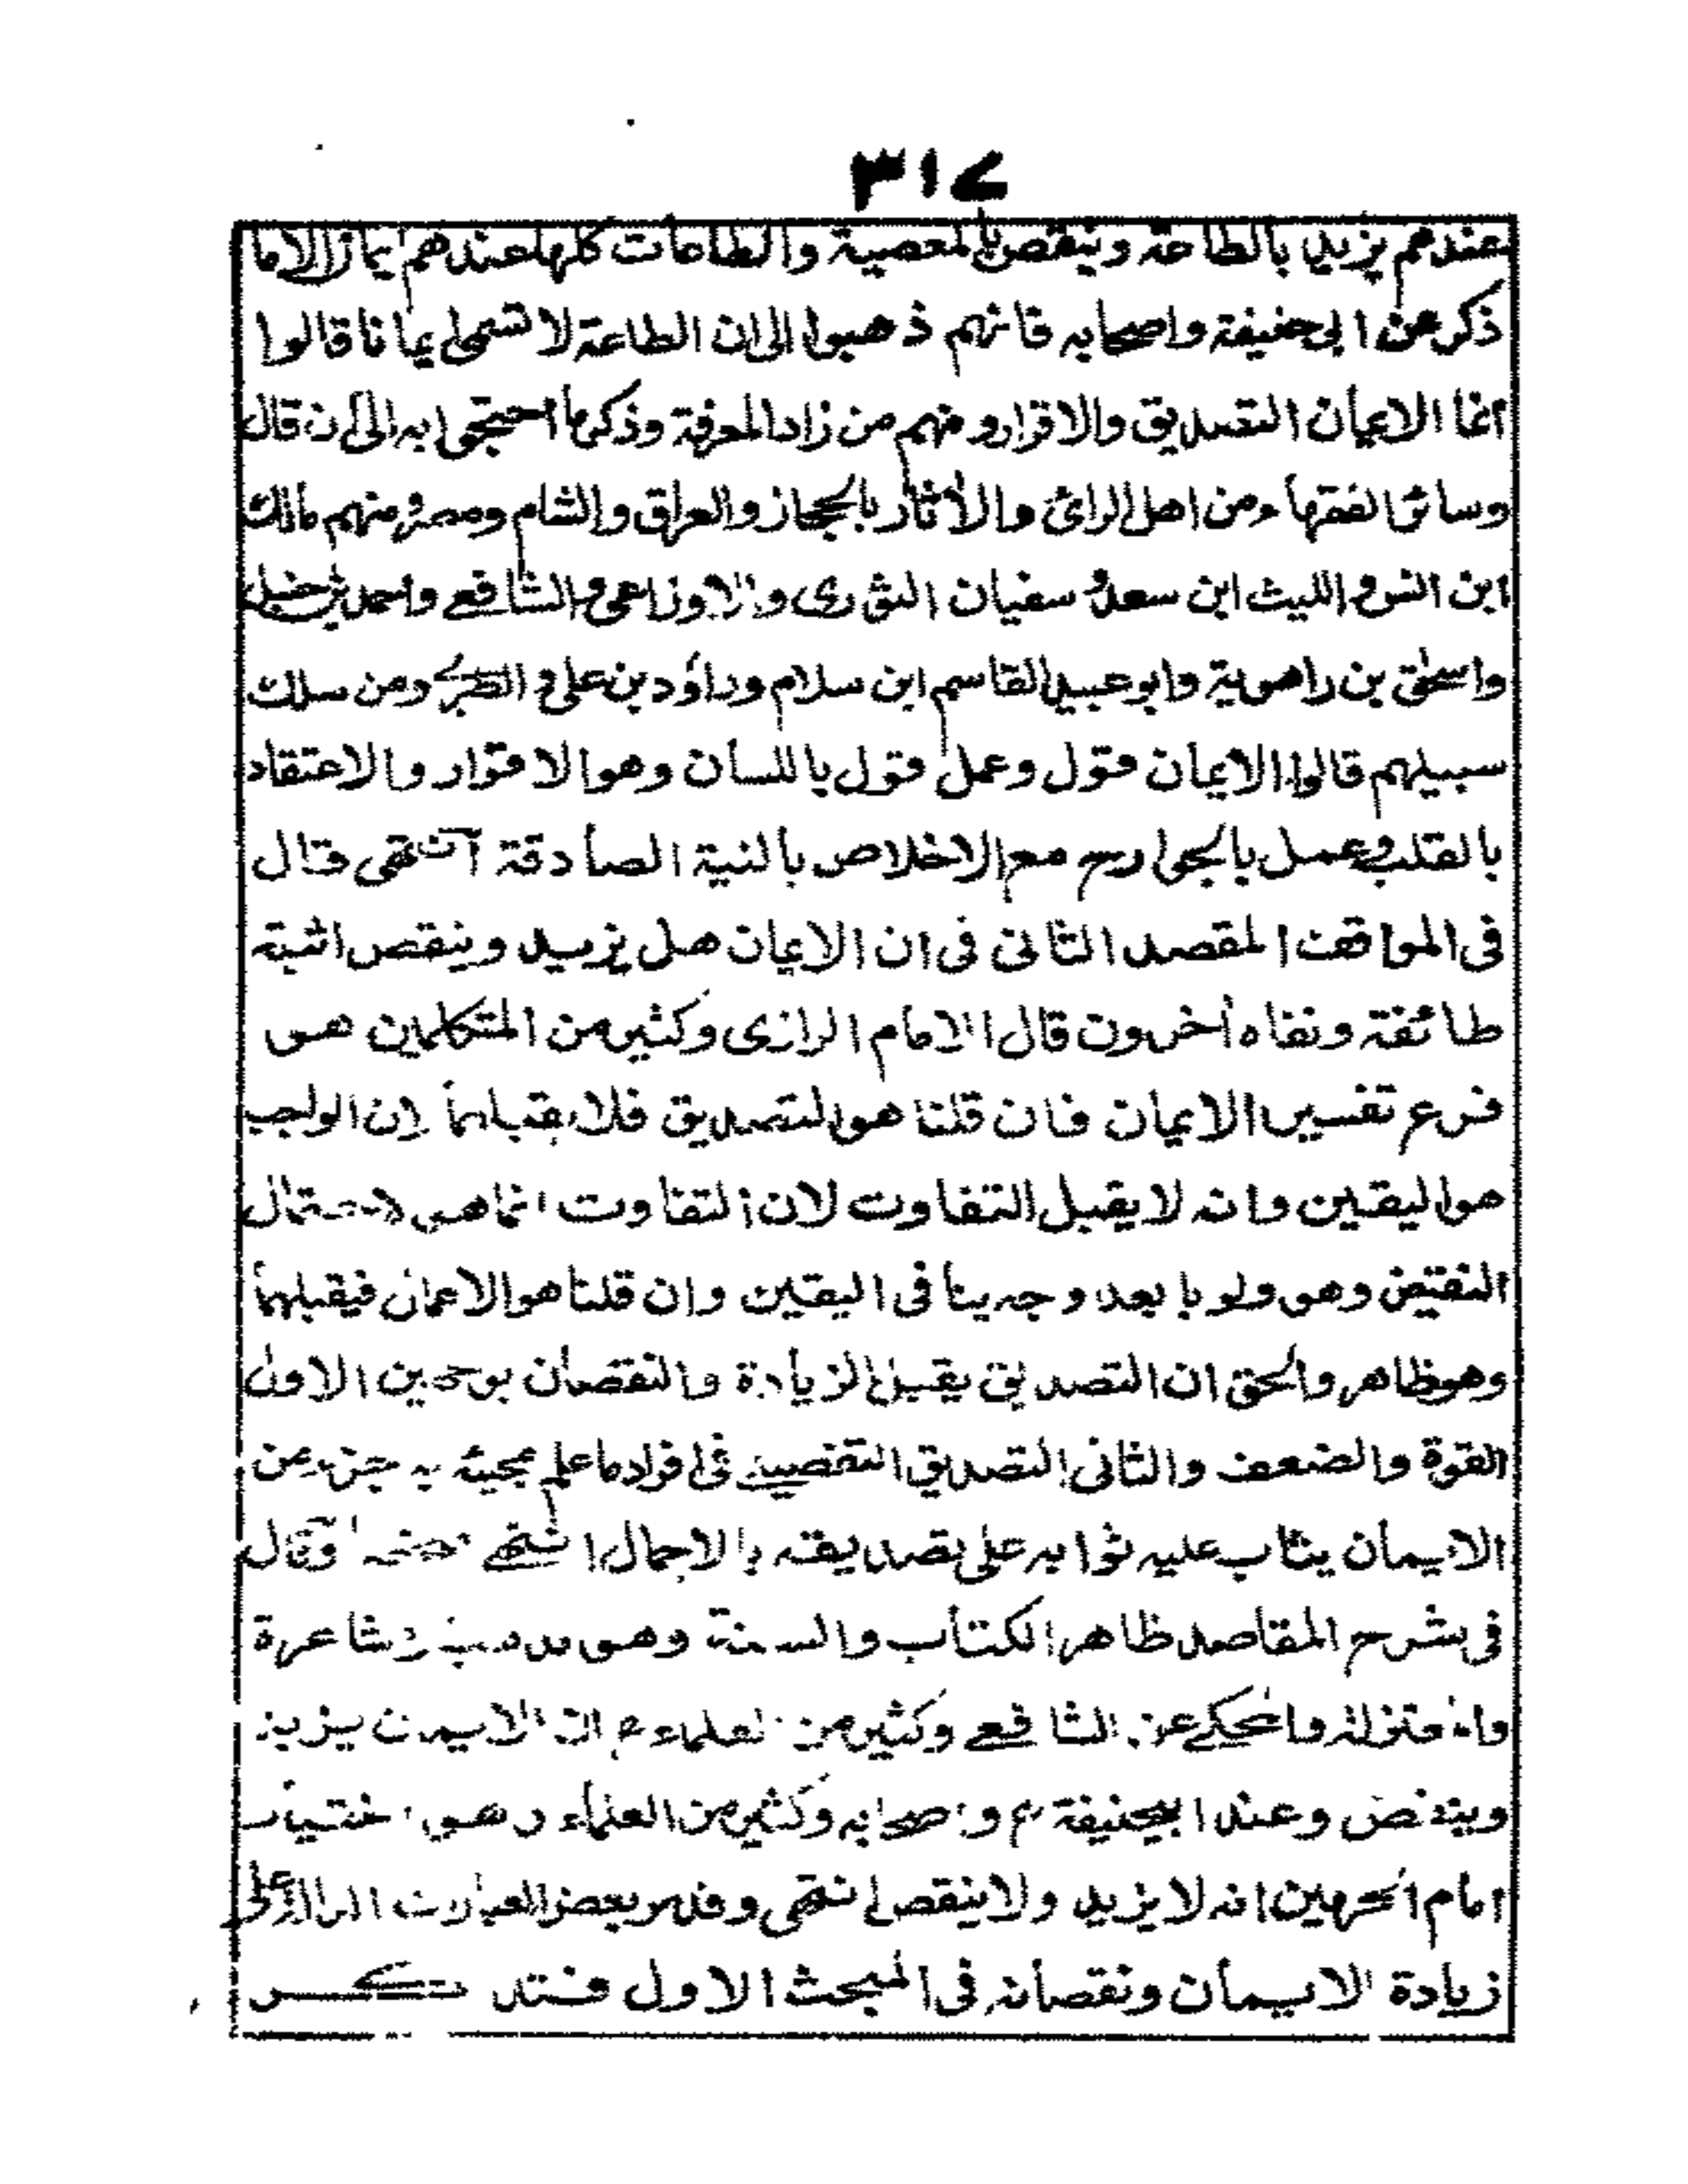 ٣١٧
عندهم يزيد بالطاعة وينقص بالمعصية والطاعات كلها عندهم ايمان الا ما
ذكر عن ابي حنيفة واصحابه فانهم ذهبوا الى ان الطاعة لا تسمى ايمانا قالوا
انما الايمان التصديق والاقرار ومنهم من زاد المعرفة وذكر ما احتجوا به الى ان قال
وسائر الفقهاء من اهل الرائ والأثار بالحجاز والعراق والشام ومصر ومنهم مالك
ابن انس والليث ابن سعد وسفيان الثوري والاوزاعي والشافعي واحمد بن حنبل
واسحٰق بن راهوية وابو عبيد القاسم ابن سلام وداؤد بن علي والطبري ومن سلك
سبيلهم قالوا الايمان قول وعمل قول باللسان وهو الاقرار والاعتقاد
بالقلب وعمل بالجوارح مع الاخلاص بالنية الصادقة انتهى قال
فى المواقف المقصد الثانى فى ان الايمان هل يزيد وينقص اثبته
طائفة ونفاه أخرون قال الامام الرازى وكثير من المتكلمين هو
فرع تفسير الايمان فان قلنا هو التصديق فلا يقبلهما لان الواجب
هو اليقين وانه لا يقبل التفاوت لان التفاوت انما هو لاحتمال
النقيض وهو ولو بابعد وجه ينا فى اليقين وان قلنا هو الاعمال فيقبلهما
وهو ظاهر والحق ان التصديق يقبل الزيادة والنقصان بوجهين الاول
القوة والضعف والثانى التصديق التفصيلي فى افراد ما علم مجيئه به جزء من
الايمان يثاب عليه ثوابه على تصديقه بالاجمال انتهى وقال
فى شرح المقاصد ظاهر الكتاب والسنة وهو مذهب الاشاعرة
والمعتزلة والمحكي عن الشافعي وكثير من العلماء ان الايمان يزيد
وينقص وعند ابيحنيفة رح واصحابه وكثير من العلماء وهو اختيار
امام الحرمين انه لا يزيد ولا ينقص انتهى وقد مر بعض العبارات الدالة على
زيادة الايمان ونقصانه فى المبحث الاول فتذكر